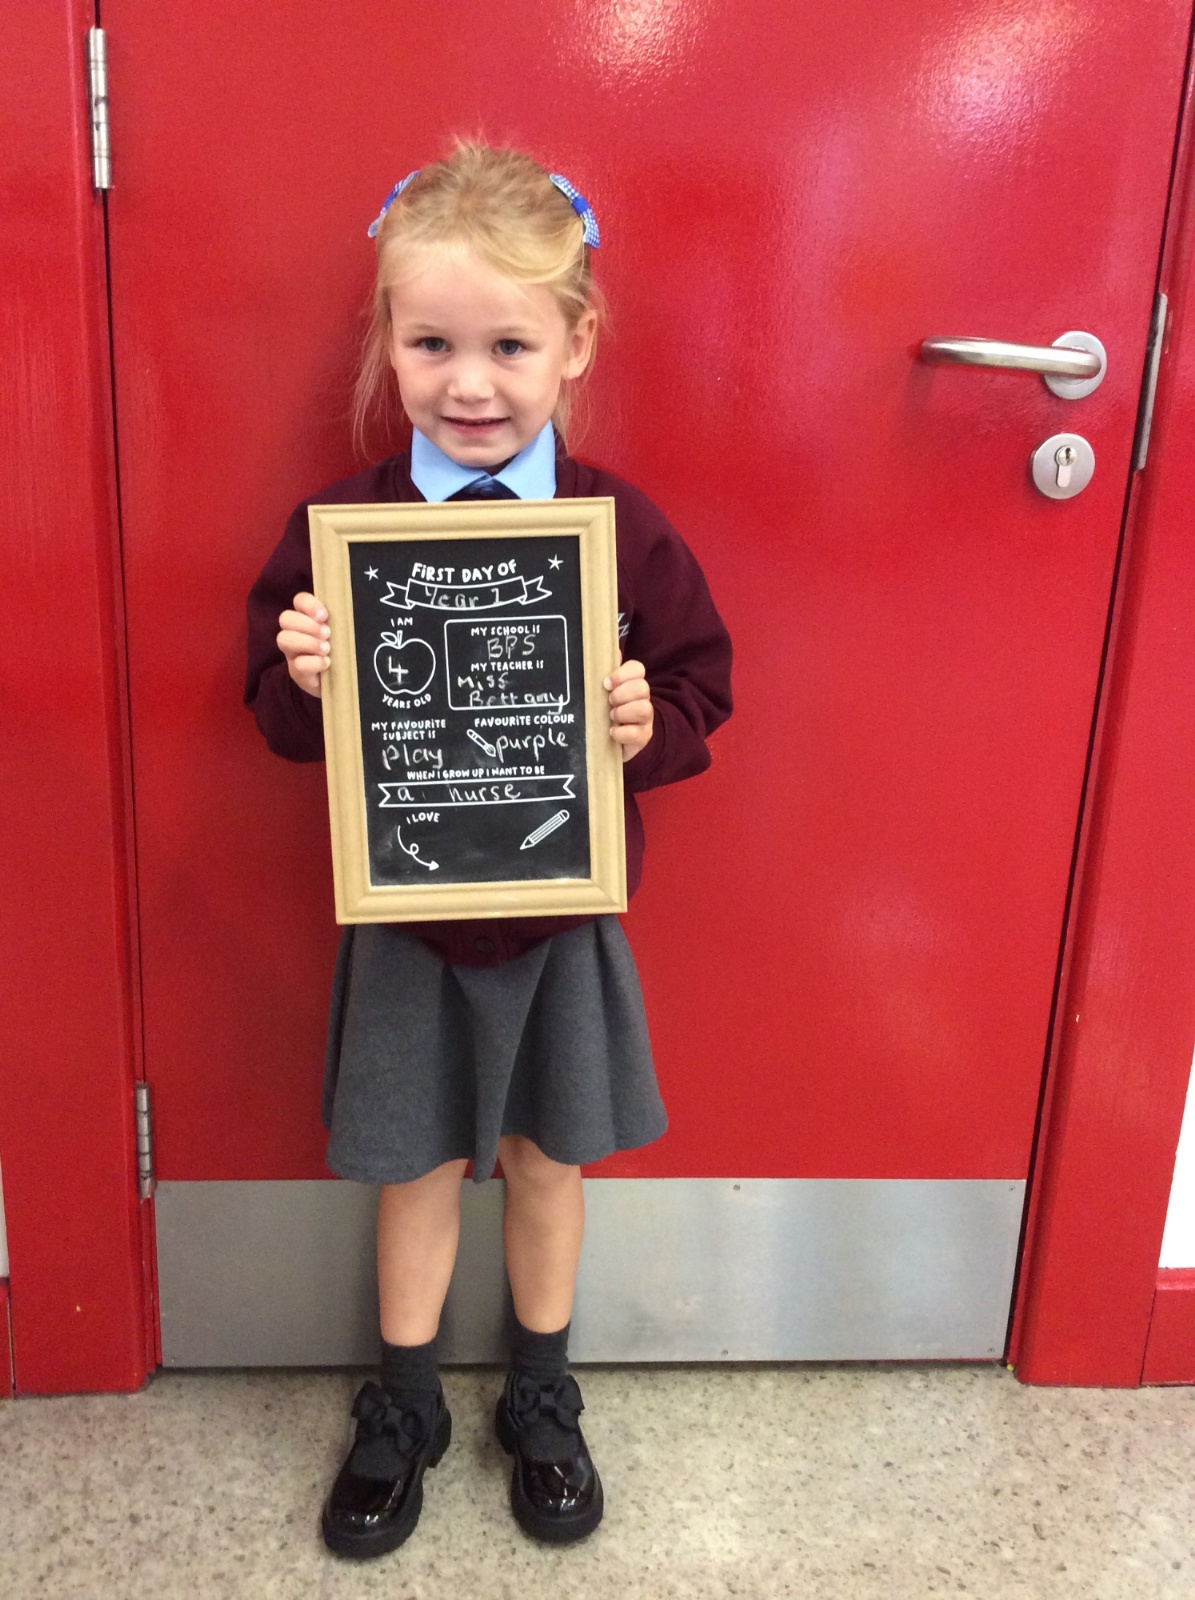 FIRST DAY OF
Year 1
I AM
4
YEARS OLD
MY SCHOOL IS
BPS
MY TEACHER IS
Miss
Bettany
MY FAVOURITE
SUBJECT IS
play
FAVOURITE COLOUR
purple
WHEN I GROW UP I WANT TO BE
a nurse
I LOVE